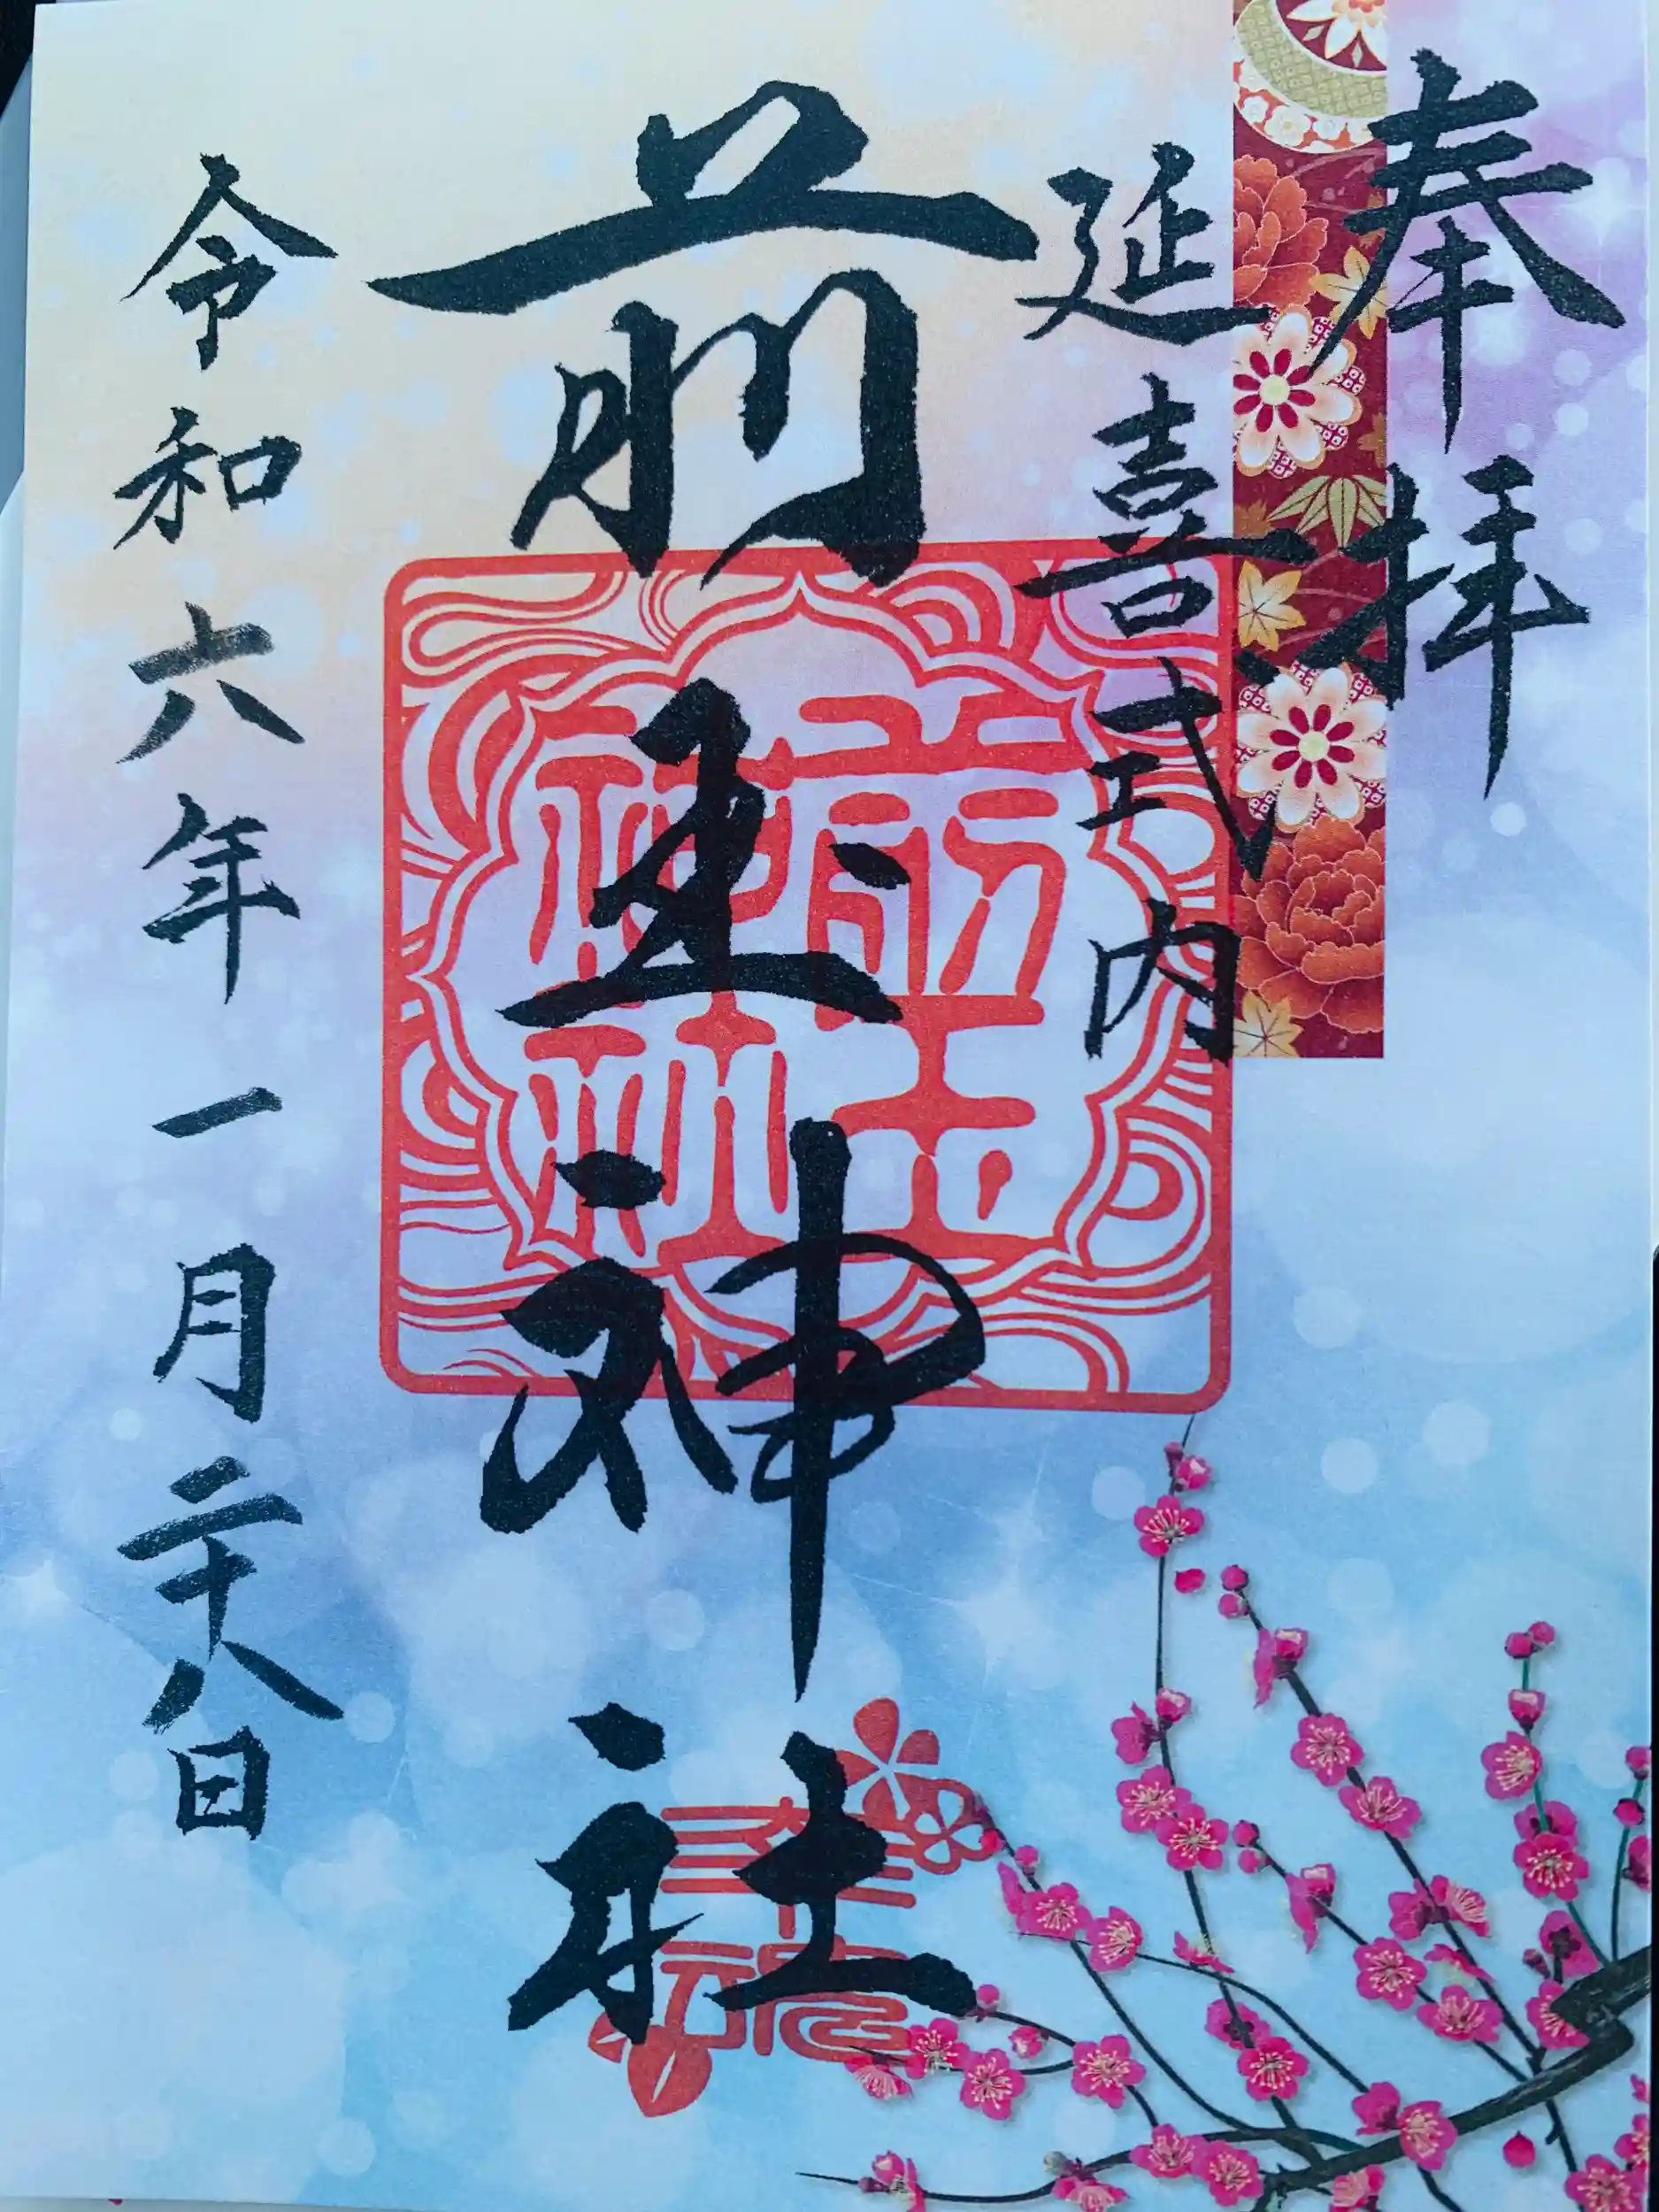 奉拝
延喜式内
前玉神社
前玉神社
令和六年一月二十八日